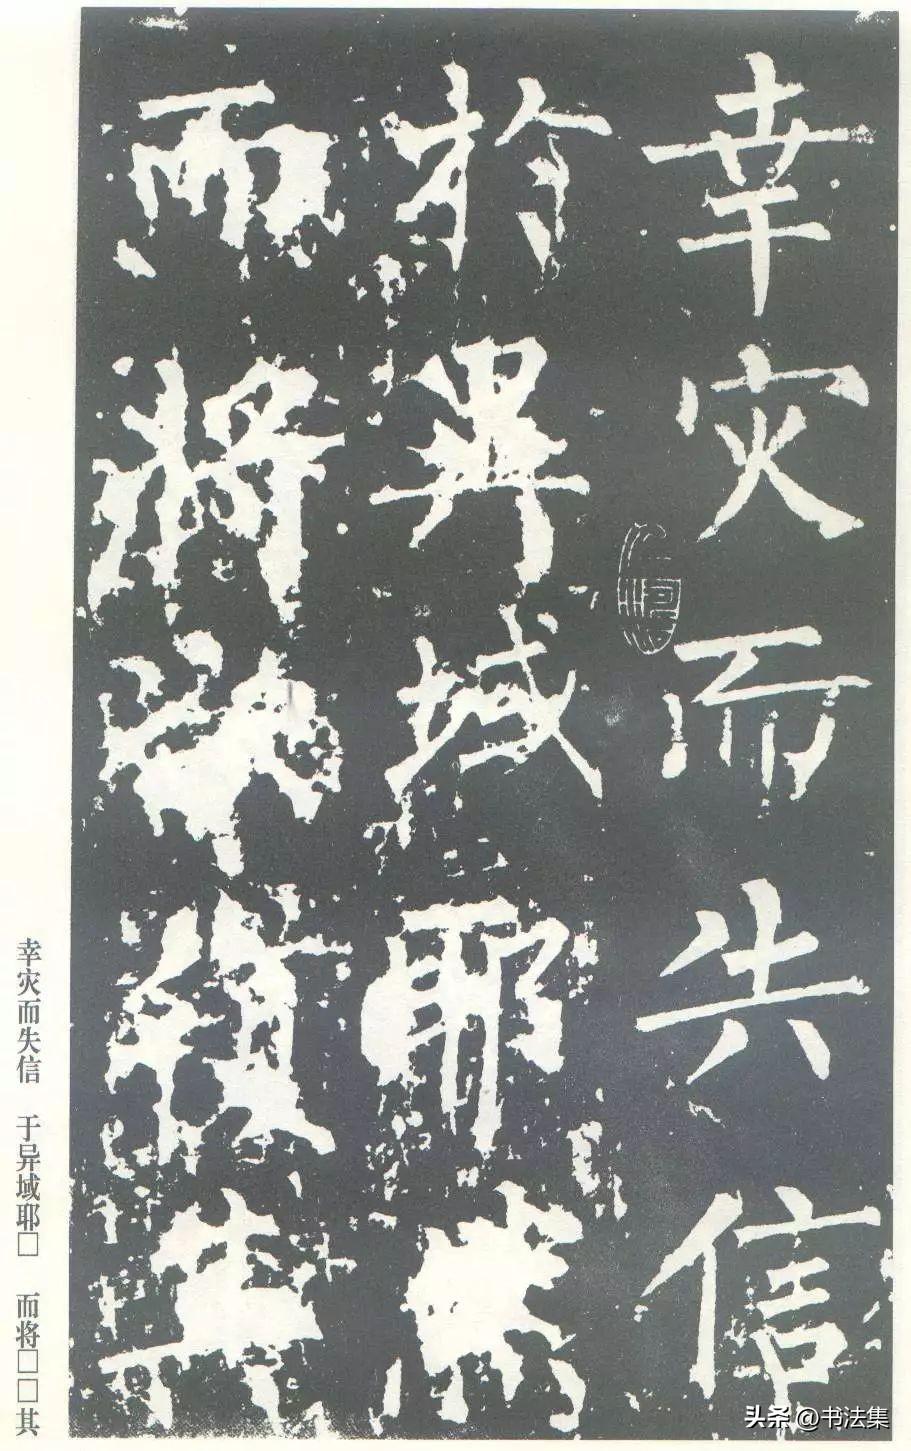 幸灾而失信
於異域耶
而將
其
幸灾而失信 于异域耶□ 而将□□其
头条 @书法集